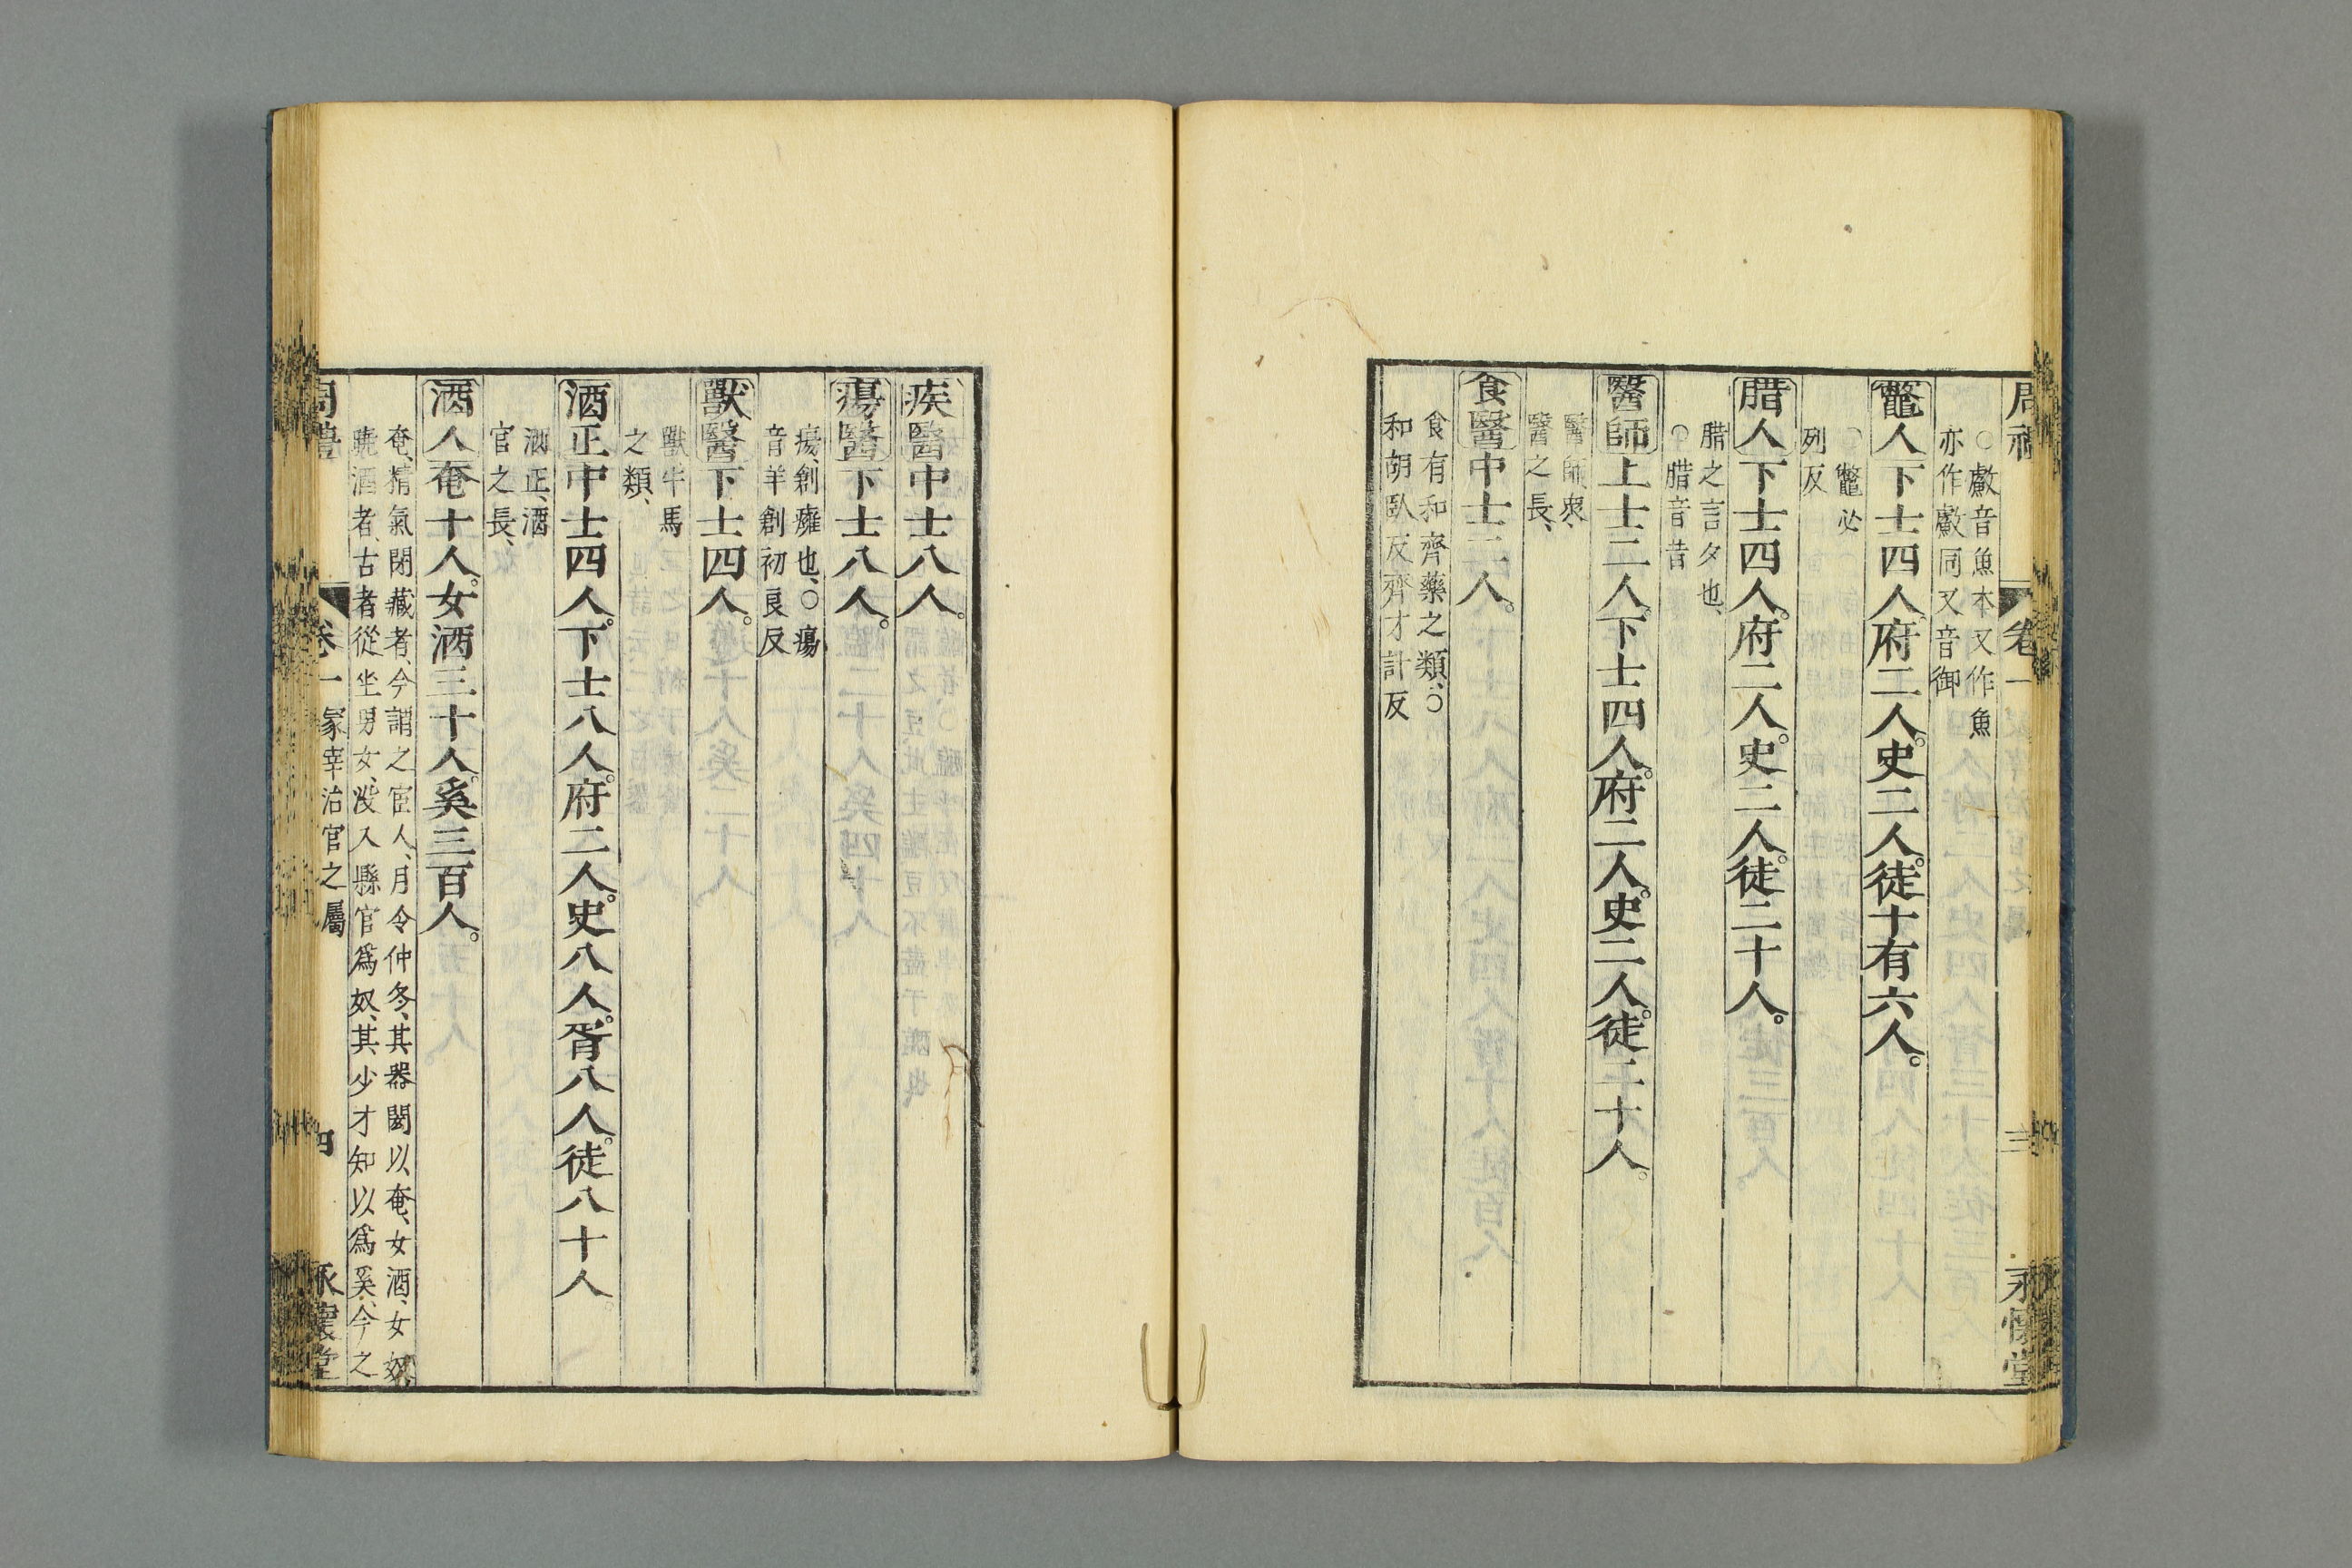 周禮 卷一 三 永懷堂
○䱷音魚本又作魚
亦作䱷同又音御
鼈人下士四人。府二人。史二人。徒十有六人。
○鼈必
列反
腊人下士四人。府二人。史二人。徒二十人。
腊之言夕也、
○腊音昔
醫師上士二人。下士四人。府二人。史二人。徒二十人。
醫師衆、
醫之長、
食醫中士二人。
食有和齊藥之類、○
和胡臥反齊才計反
疾醫中士八人。
瘍醫下士八人。
瘍、創癰也、○瘍
音羊創初良反
獸醫下士四人。
獸牛馬
之類、
酒正中士四人。下士八人。府二人。史八人。胥八人。徒八十人。
酒正、酒
官之長、
酒人奄十人。女酒三十人。奚三百人。
奄、精氣閉藏者、今謂之宦人、月令仲冬、其器閎以、奄、女酒、女奴
曉酒者、古者從坐男女、沒入縣官爲奴、其少才知以爲奚、今之
周禮 卷一 冢宰治官之屬 四 永懷堂